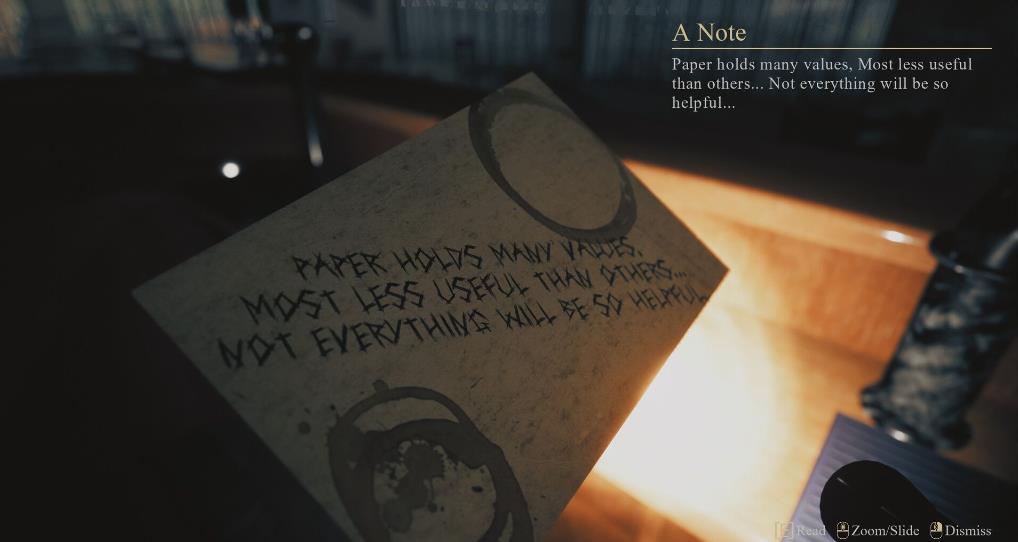 A Note
Paper holds many values, Most less useful
than others... Not everything will be so
helpful...
PAPER HOLDS MANY VALUES,
MOST LESS USEFUL THAN OTHERS...
NOT EVERYTHING WILL BE SO HELPFUL
[E] Read Zoom/Slide Dismiss